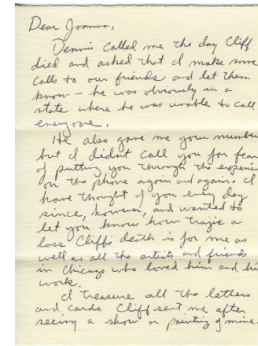 Dear Joanna,
Dennis called me the day Cliff
died and asked that I make some
calls to our friends and let them
know – he was obviously in a
state where he was unable to call
everyone.
He also gave me your number
but I didn't call you for fear
of putting you through the experience
on the phone again and again. I
have thought of you every day
since, however, and wanted to
let you know how tragic a
loss Cliff's death is for me as
well as all the artists and friends
in Chicago who loved him and his
work.
I treasure all the letters
and cards Cliff sent me after
seeing a show or painting of mine.